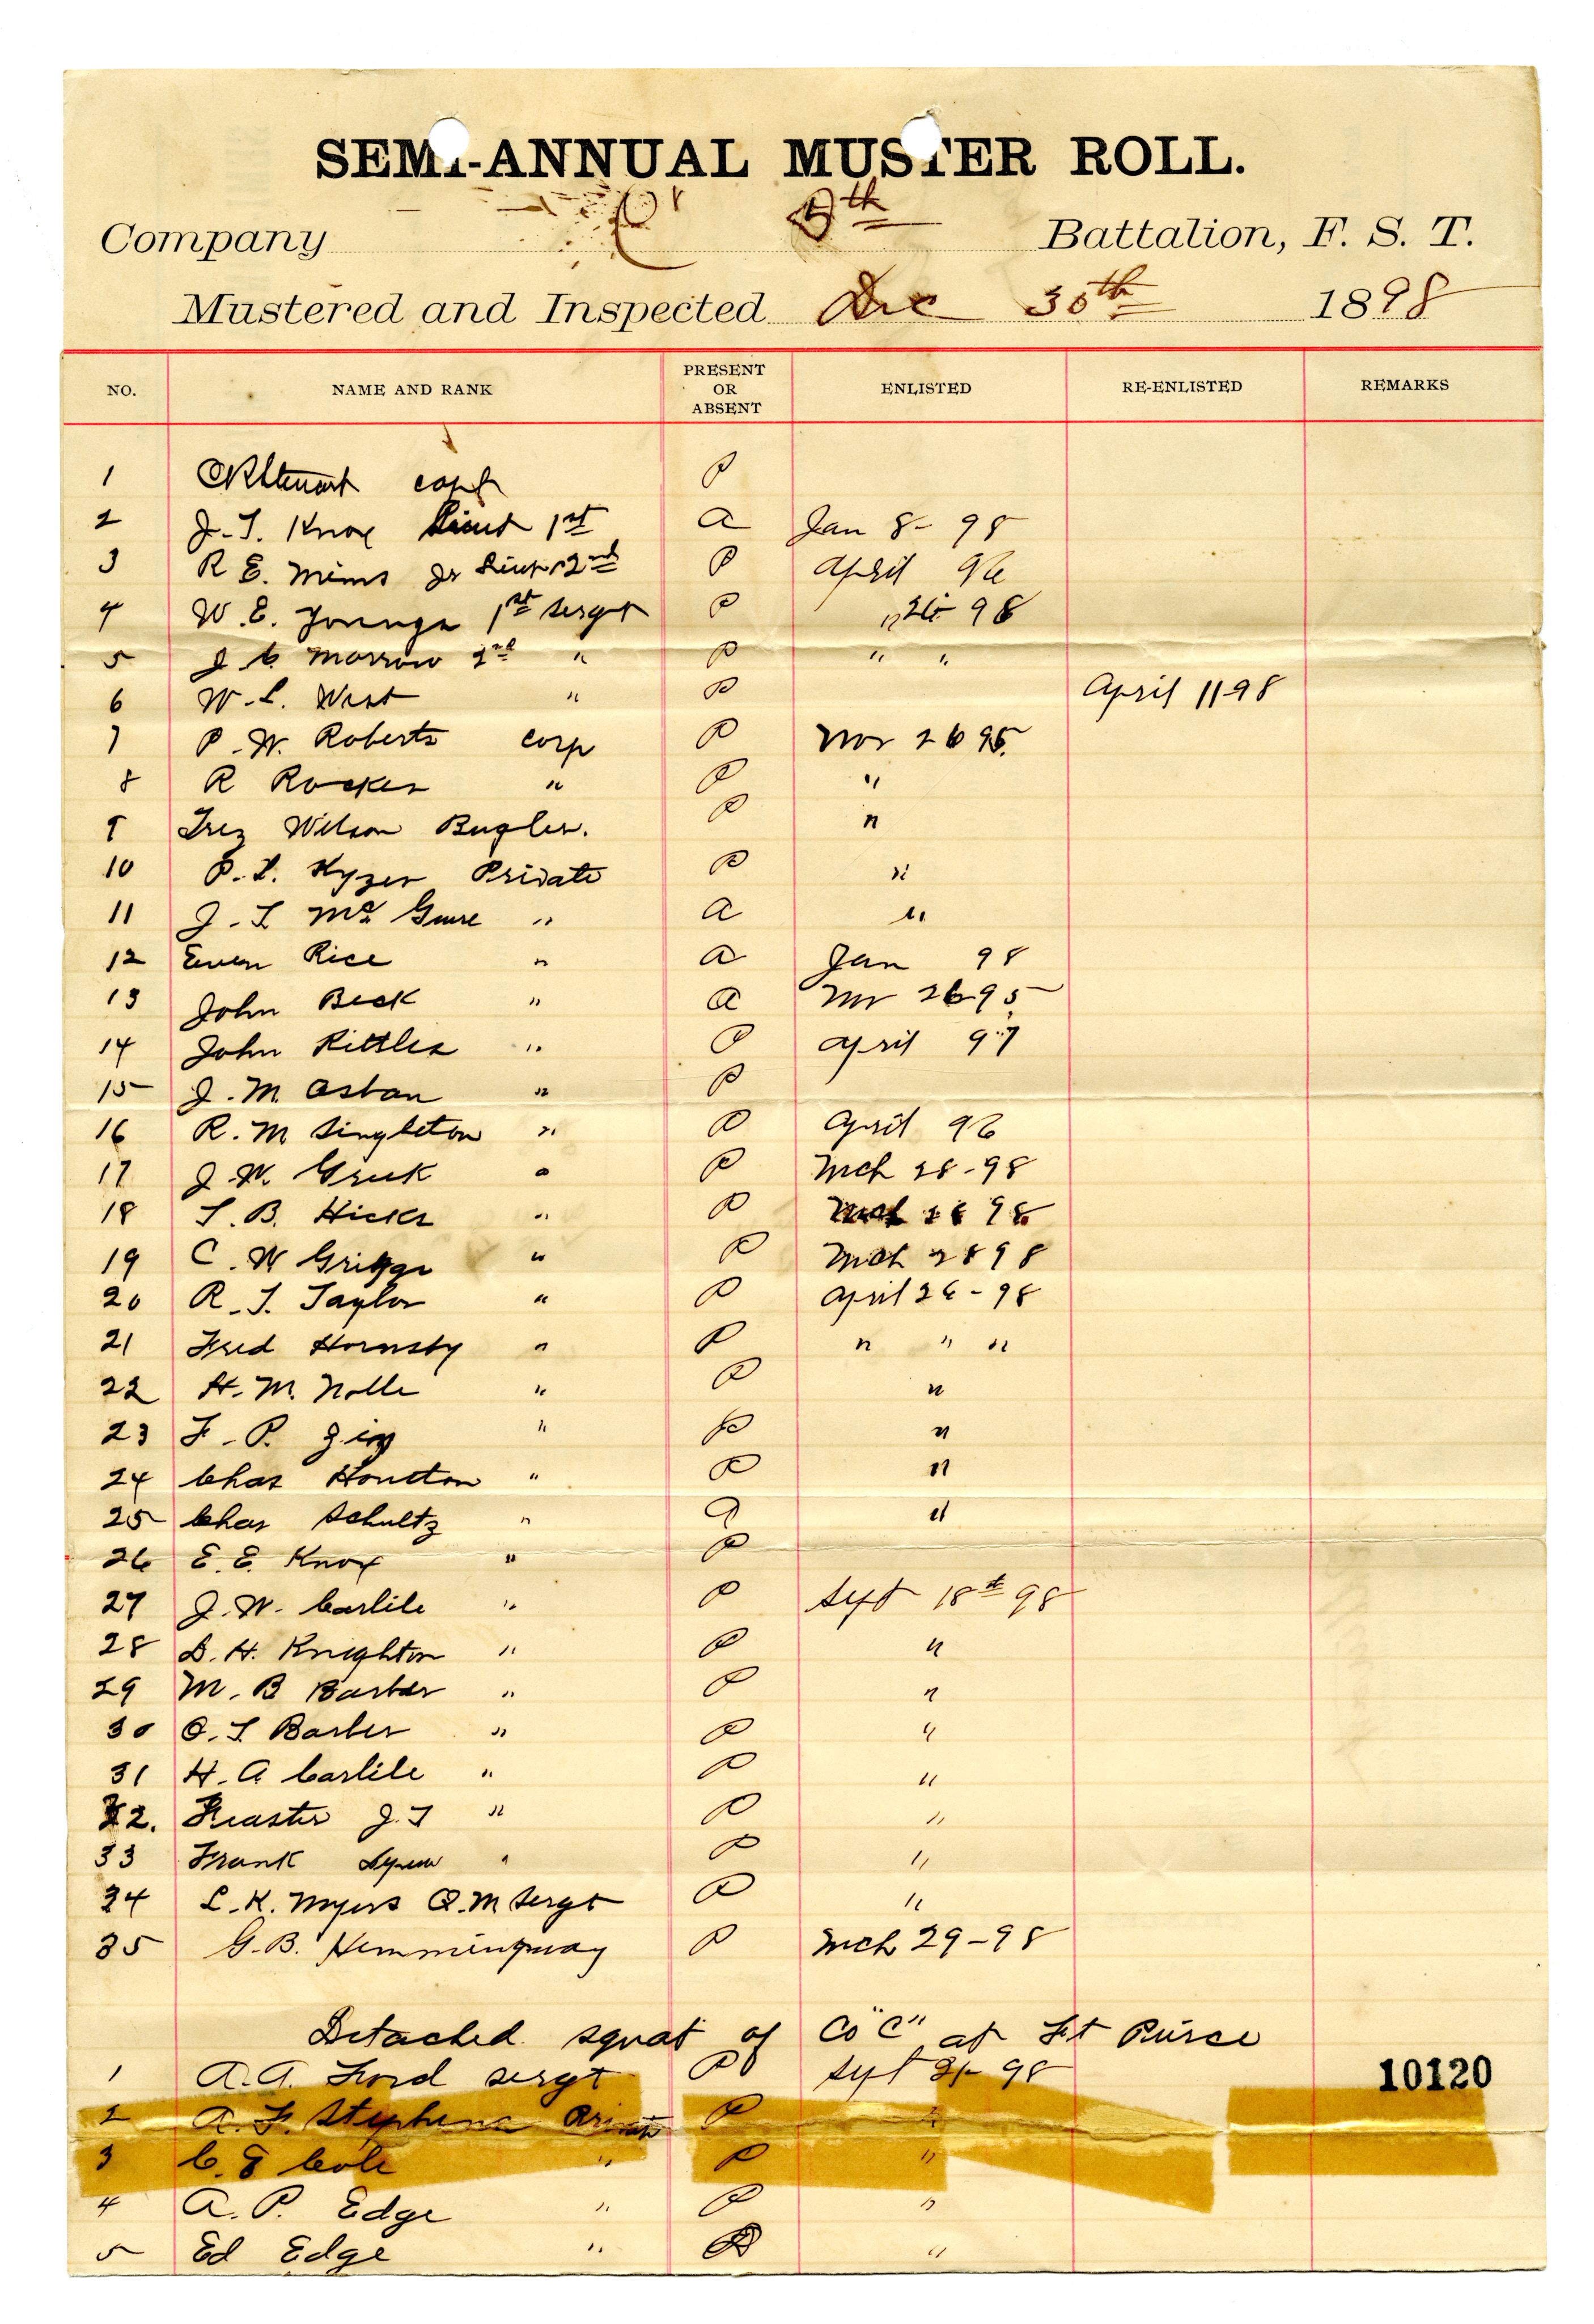 SEMI-ANNUAL MUSTER ROLL.
Company C 5th Battalion, F. S. T.
Mustered and Inspected Dec 30th 1898
NO. NAME AND RANK PRESENT OR ABSENT ENLISTED RE-ENLISTED REMARKS
1 capt P
2 J. T. Knox Lieut 1st a Jan 8- 98
3 R E. Mims Jr Lieut 2nd P April 96
4 W. E. 1st Sergt P " 26 98
5 J. C. Morrow 2nd " P " "
6 W. L. West " P April 11 98
7 P. W. Roberts Corp P Nov 26 95
8 R Rocker " P "
9 Wilson Bugler. P "
10 P. L. Kyzer Private P "
11 J. L Mc Guire " a "
12 Even Rice " a Jan 98
13 John Beck " a Nv 26 95
14 John Kittles " P April 97
15 J. M. Osban " P
16 R. M Singleton " P April 96
17 J. W. " P Mch 28-98
18 S. B. Hicks " P 98
19 C. W Griggs " P Mch 28 98
20 R. T. Taylor " P April 26-98
21 Fred Hornsby " P " " "
22 H. M. Nolle " P "
23 F. P. " P "
24 Chas Houston " P "
25 Chas Schultz " a "
26 E. E. Knox " P
27 J. W. Carlile " P Sept 18th 98
28 D. H. Knighton " P "
29 M. B Barber " P "
30 O. T Barber " P "
31 H. A Carlile " P "
32. Feaster J. T " P "
33 Frank " P "
34 L. K. Myers Q. M Sergt P "
35 G. B. Hemmingway P Mch 29-98
Detached squat of Co "C" at Ft Pierce
1 A. A. Ford sergt P Sept 21- 98
10120
2 A. F. Stephens Private P "
3 C. E Cole " P "
4 A. P. Edge " P "
5 Ed Edge " P "